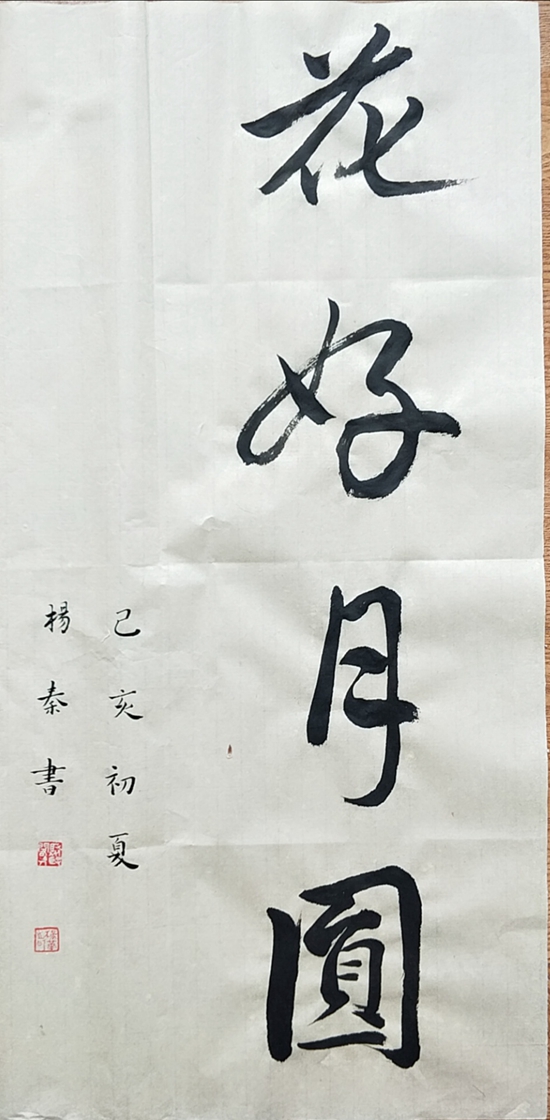 花好月圓
己亥初夏
楊秦書